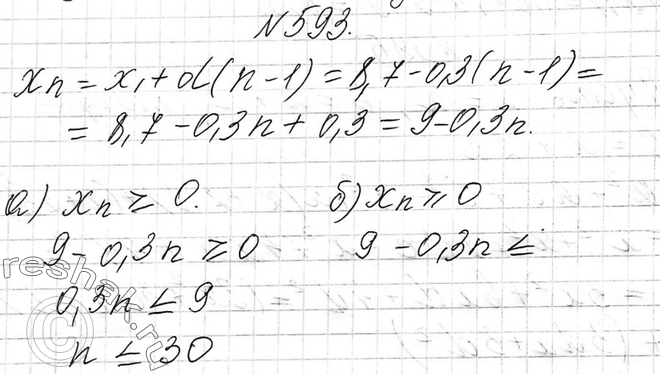 N593.
xn = x1 + d(n-1) = 8,7 - 0,3(n-1) =
= 8,7 - 0,3n + 0,3 = 9 - 0,3n.
а) xn ≥ 0. б) xn ⩾ 0
9 - 0,3n ≥ 0 9 - 0,3n ≤
0,3n ≤ 9
n ≤ 30
reshak.ru